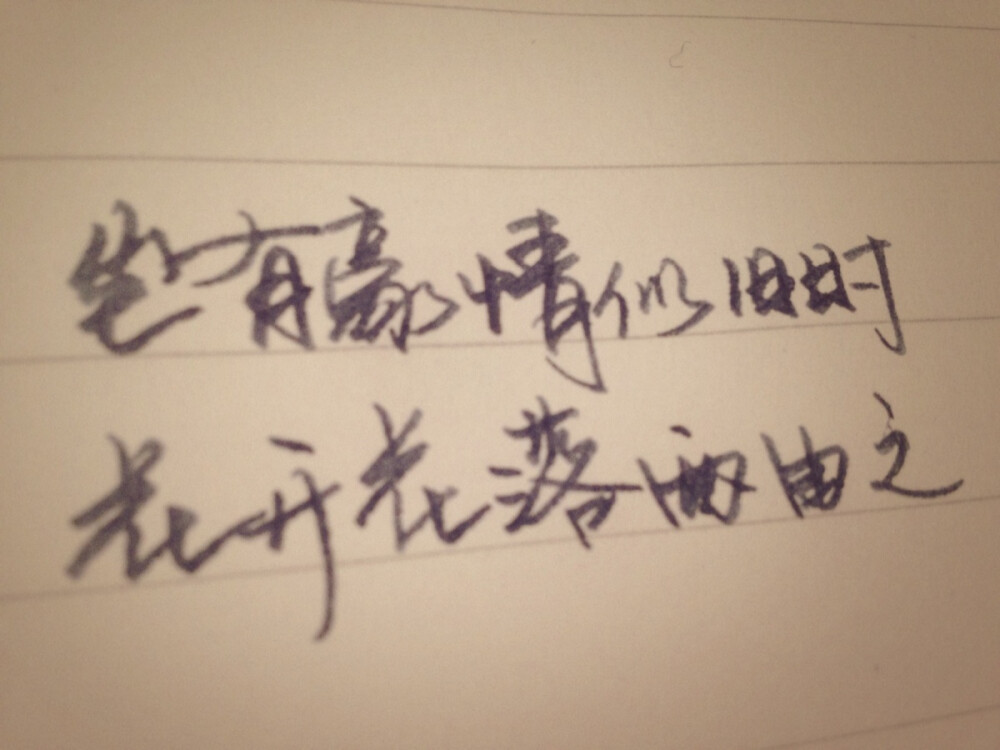 岂有豪情似旧时
花开花落两由之